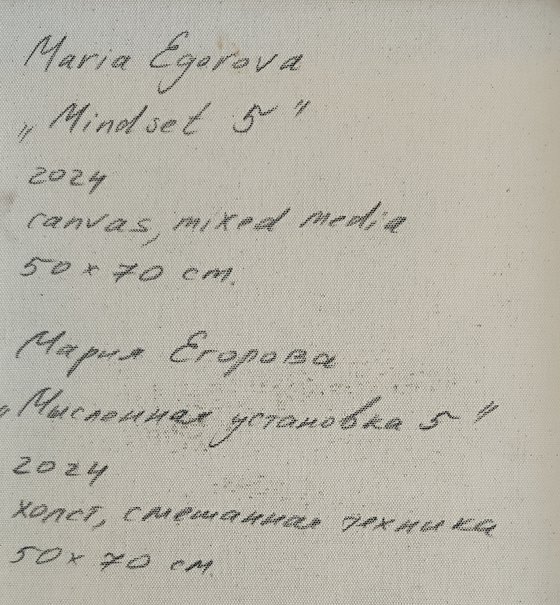 Maria Egorova
„Mindset 5"
2024
canvas, mixed media
50 x 70 cm.
Мария Егорова
„Мысленная установка 5"
2024
холст, смешанная техника
50 x 70 см.